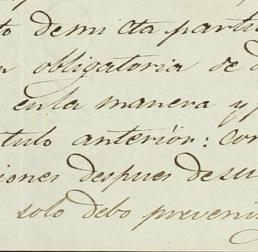 to de mi cta parti
n obligatoria de d
en la manera y p
tulo anterior: con
iones despues de su
solo debo preveni